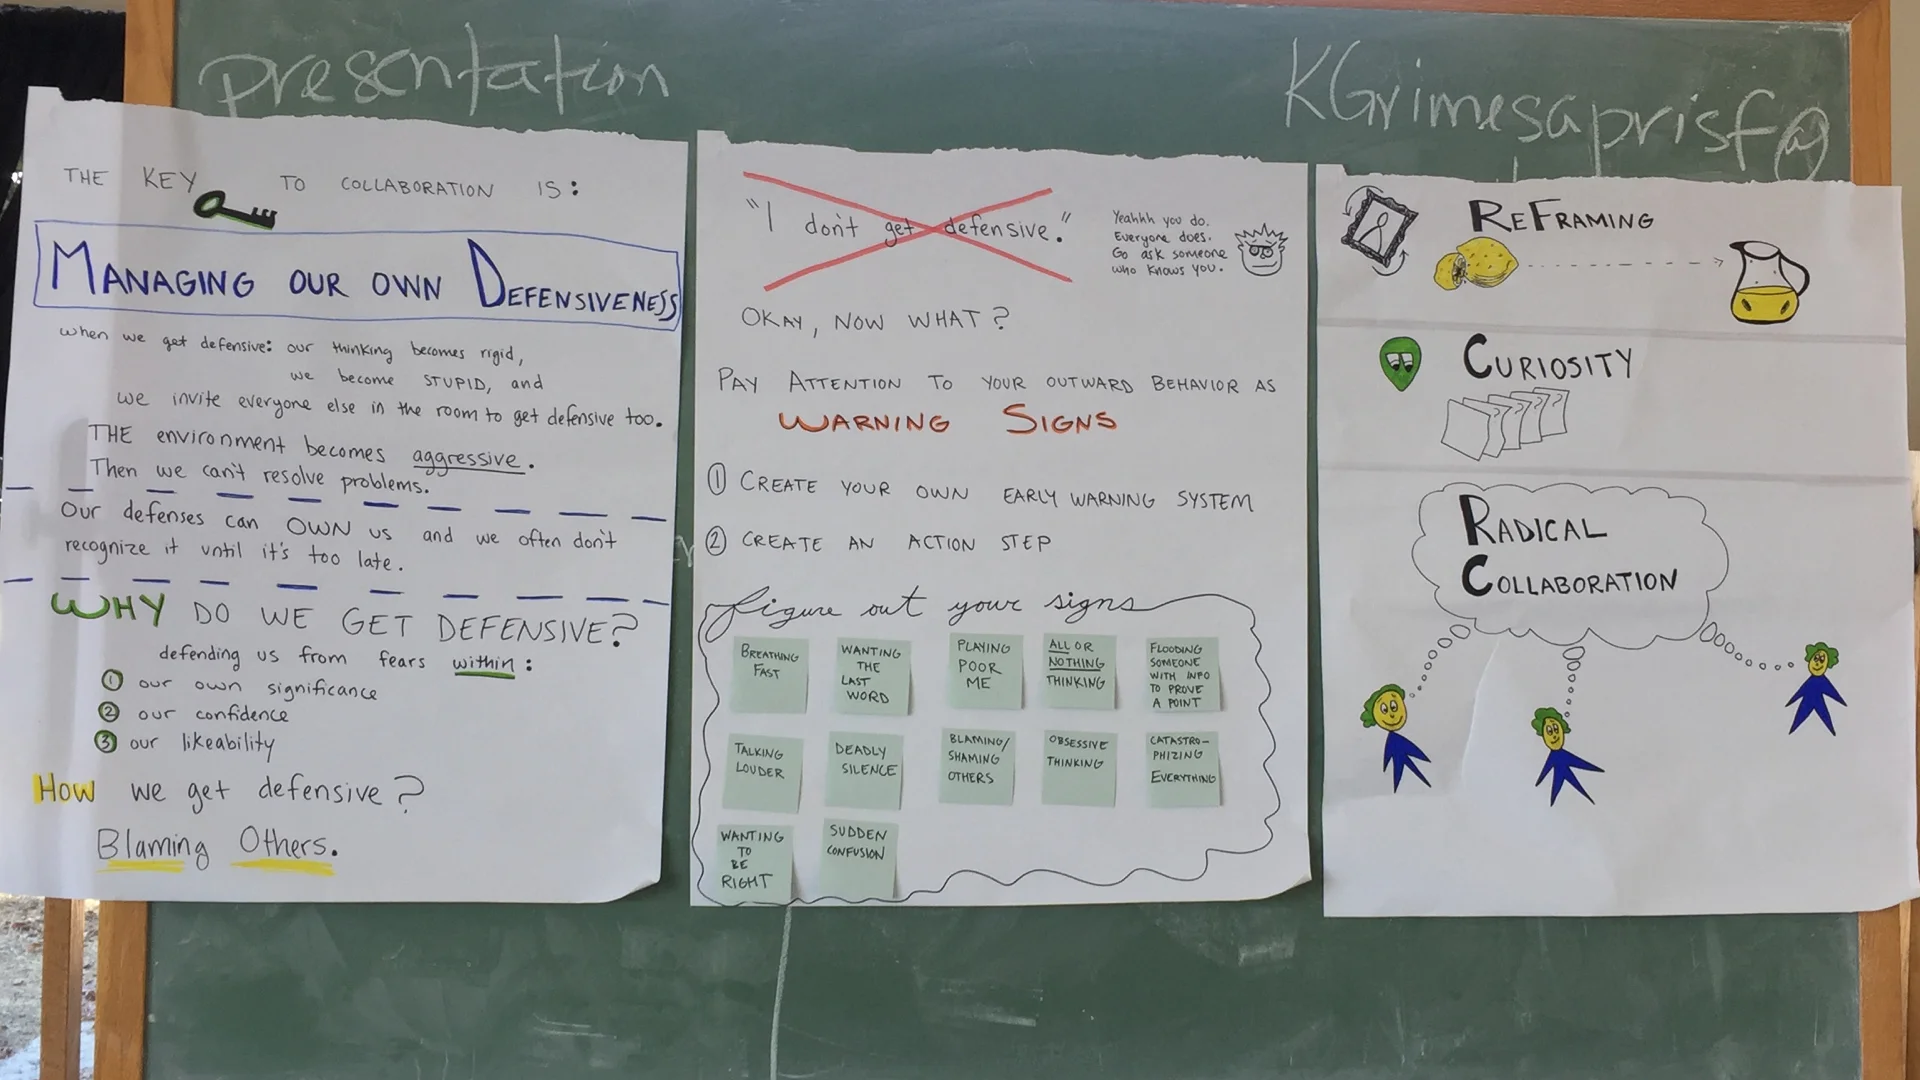 presentation
KGrimesaprisf
THE KEY TO COLLABORATION IS:
MANAGING OUR OWN DEFENSIVENESS
when we get defensive: our thinking becomes rigid,
we become STUPID, and
we invite everyone else in the room to get defensive too.
THE environment becomes aggressive.
Then we can't resolve problems.
Our defenses can OWN us and we often don't
recognize it until it's too late.
WHY DO WE GET DEFENSIVE?
defending us from fears within:
① our own significance
② our confidence
③ our likeability
How we get defensive?
Blaming Others.
"I don't get defensive."
Yeahhh you do.
Everyone does.
Go ask someone
who knows you.
OKAY, NOW WHAT?
PAY ATTENTION TO YOUR OUTWARD BEHAVIOR AS
WARNING SIGNS
① CREATE YOUR OWN EARLY WARNING SYSTEM
② CREATE AN ACTION STEP
figure out your signs
BREATHING
FAST
WANTING
THE
LAST
WORD
PLAYING
POOR
ME
ALL OR
NOTHING
THINKING
FLOODING
SOMEONE
WITH INFO
TO PROVE
A POINT
TALKING
LOUDER
DEADLY
SILENCE
BLAMING/
SHAMING
OTHERS
OBSESSIVE
THINKING
CATASTRO-
PHIZING
EVERYTHING
WANTING
TO
BE
RIGHT
SUDDEN
CONFUSION
REFRAMING
CURIOSITY
RADICAL
COLLABORATION